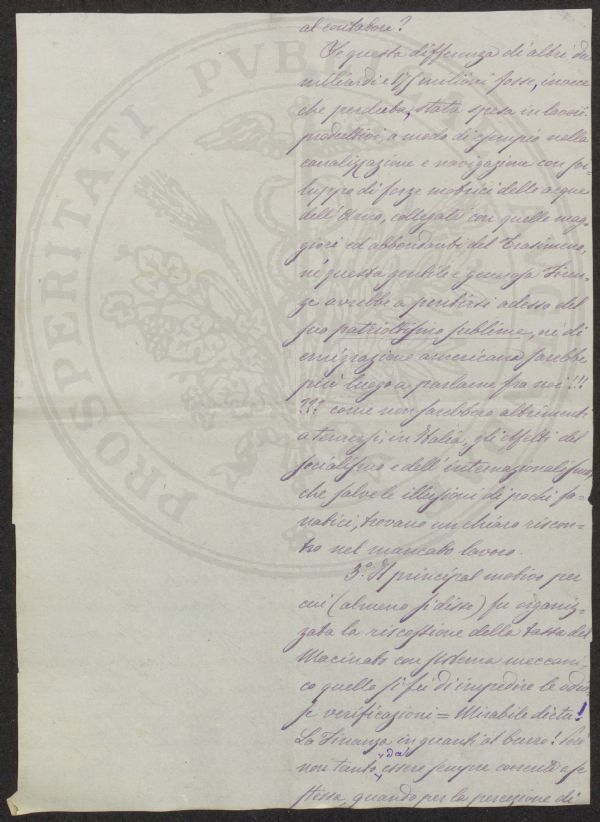 al contabore?
Se questa differenza di altri due
miliardi e 1/5 milioni fosse, invece
che perduta, stata spesa in lavori
produttivi, a modo di esempio nella
canalizzazione e navigazione con svi-
luppo di forze motrici delle acque
dell'Arno, collegate con quelle mag-
giori ed abbondanti del Trasimeno,
nè questa gentile e generosa Firen-
ze avrebbe a pentirsi adesso del
suo patriottismo sublime, nè di
emigrazione americana sarebbe
più luogo a parlarne fra noi!!!
??? come non sarebbero altrimenti
a temersi, in Italia, gli effetti del
socialismo e dell'internazionalismo,
che salve le illusioni di pochi fa-
natici, trovano un chiaro riscon-
tro nel mancato lavoro.
3.º Il principal motivo per
cui (almeno si disse) fu organiz-
zata la riscossione della tassa del
Macinato con sistema meccani-
co quello si fu di impedire le odio-
se verificazioni = Mirabile dictu!
La Finanza in guanti al burro! Però
non tanto da essere sempre coerente a se
stessa, quando per la percezione di
PROSPERITATI PVBLI